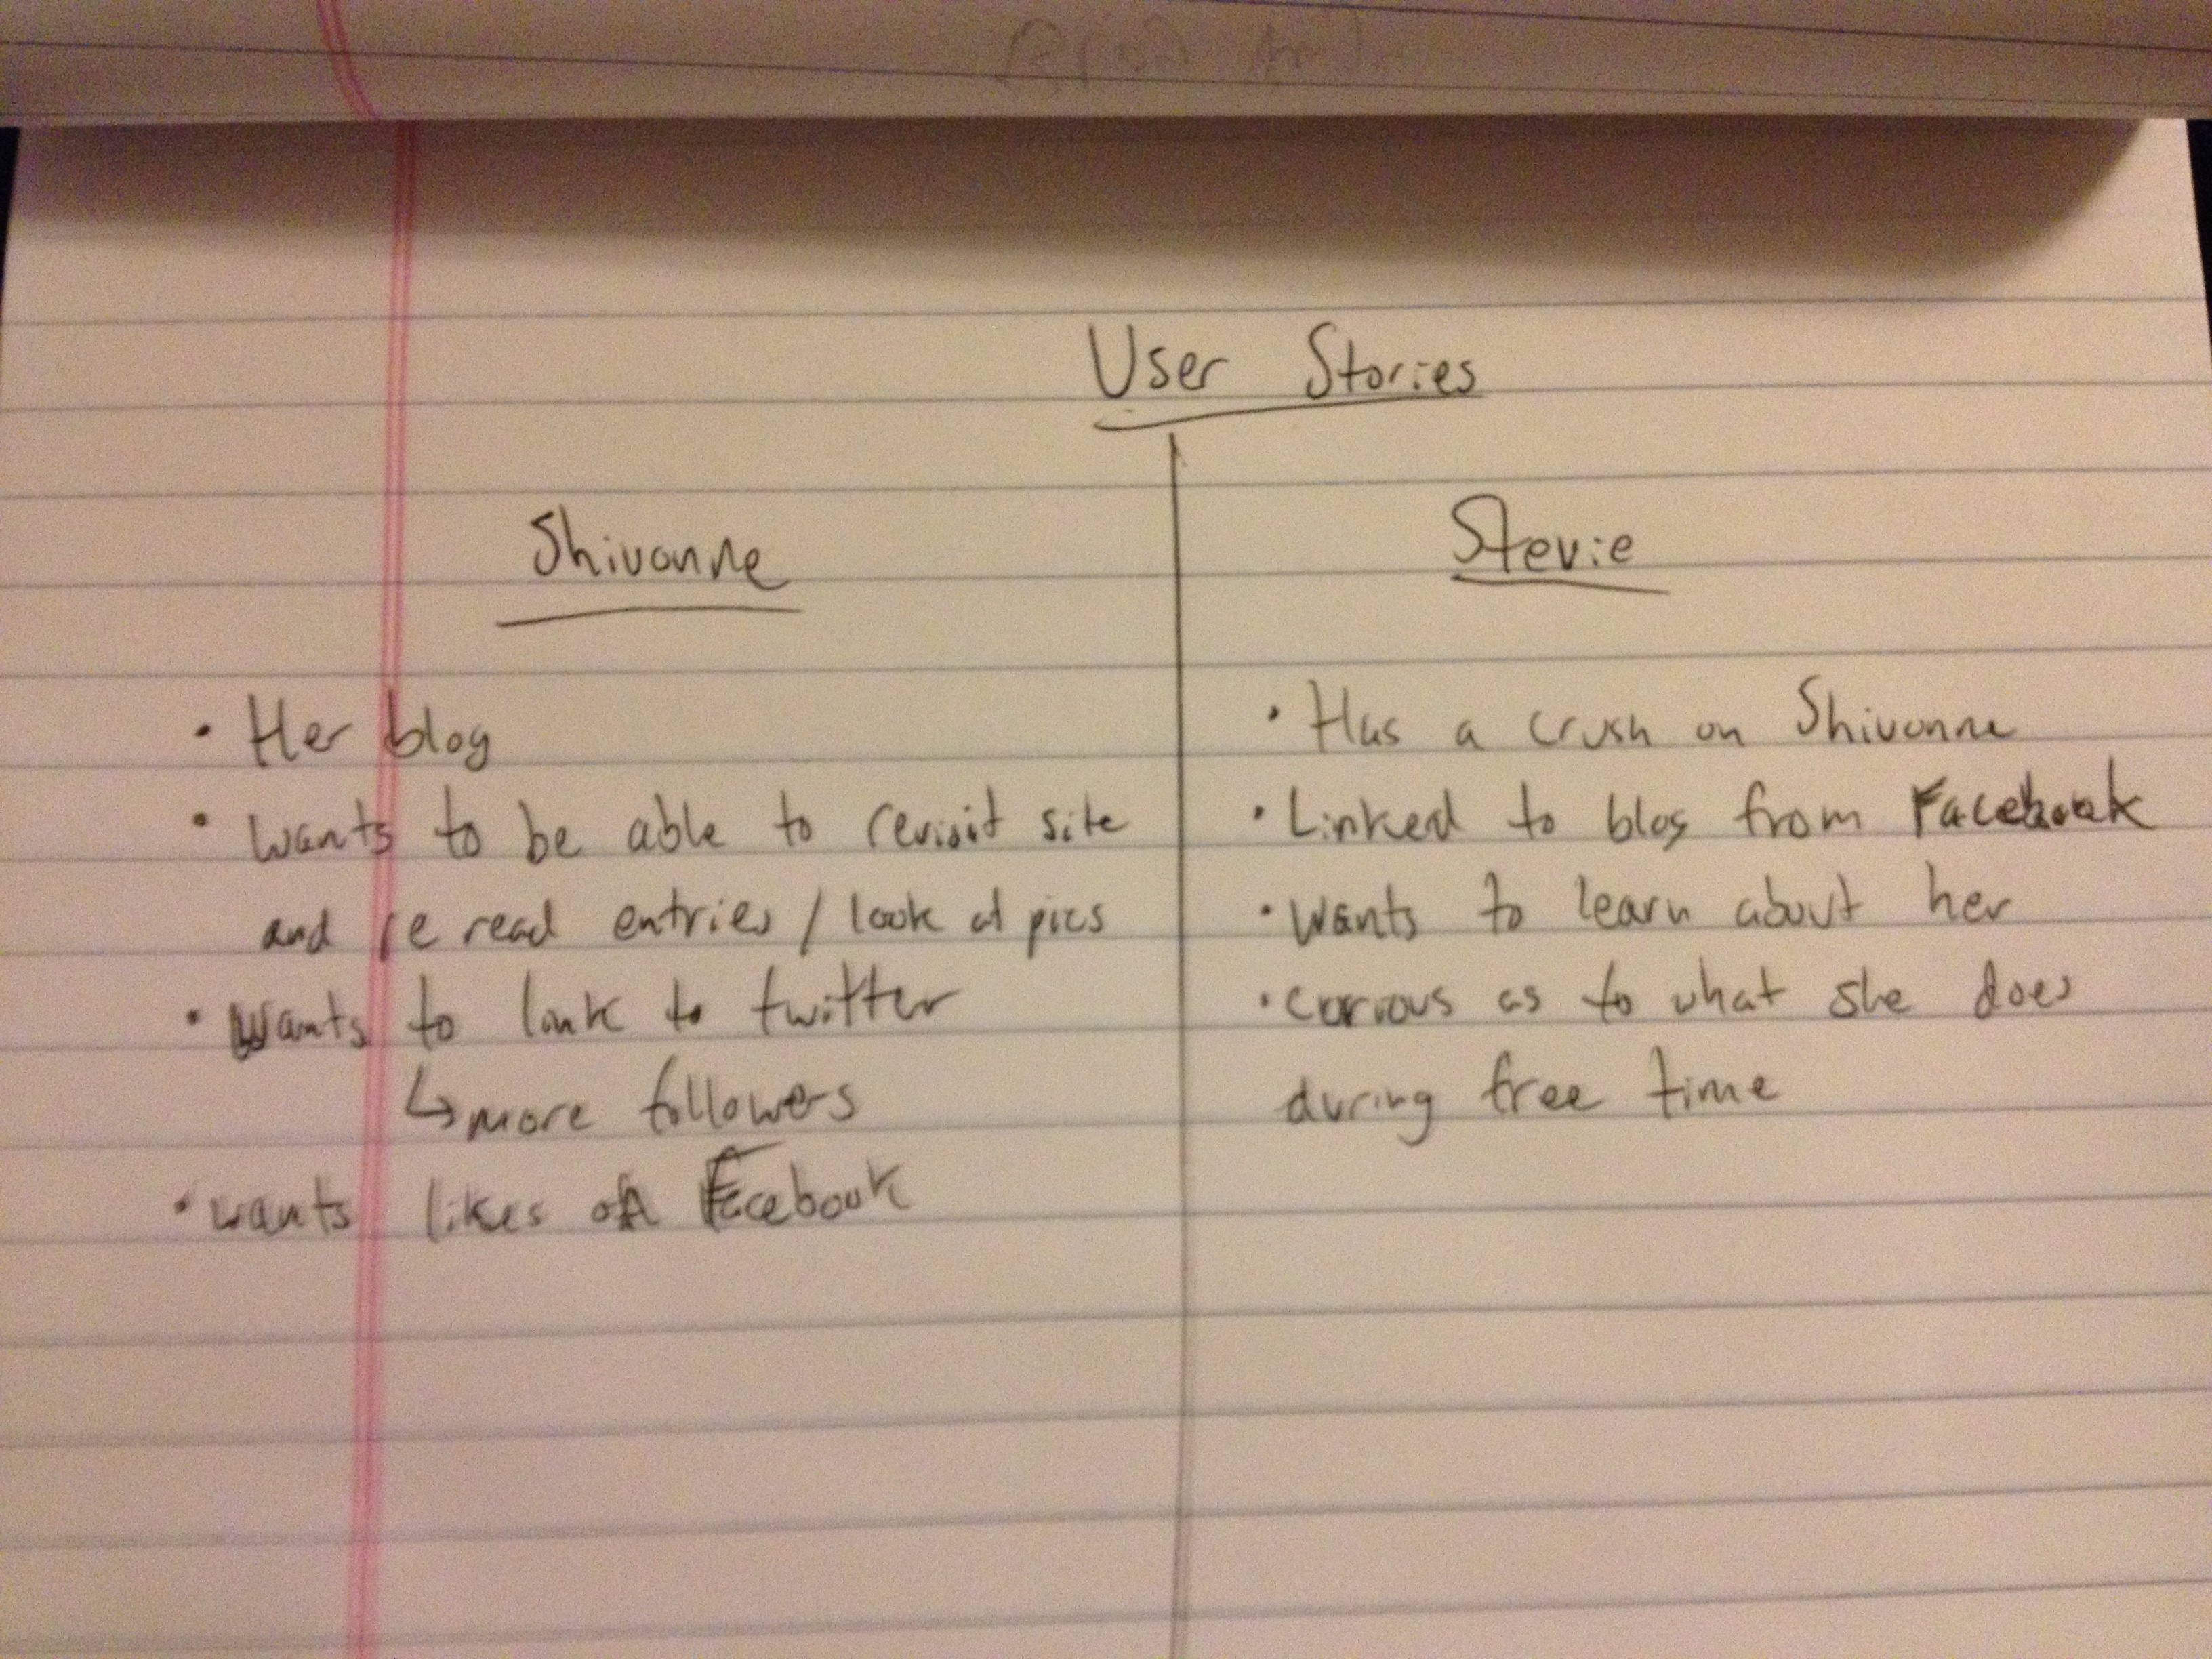 User Stories
Shivonne
• Her blog
• Wants to be able to revisit site
and re read entries / look at pics
• Wants to link to twitter
↳ more followers
• wants likes on Facebook
Stevie
• Has a crush on Shivonne
• Linked to blog from Facebook
• Wants to learn about her
• as to what she does
during free time